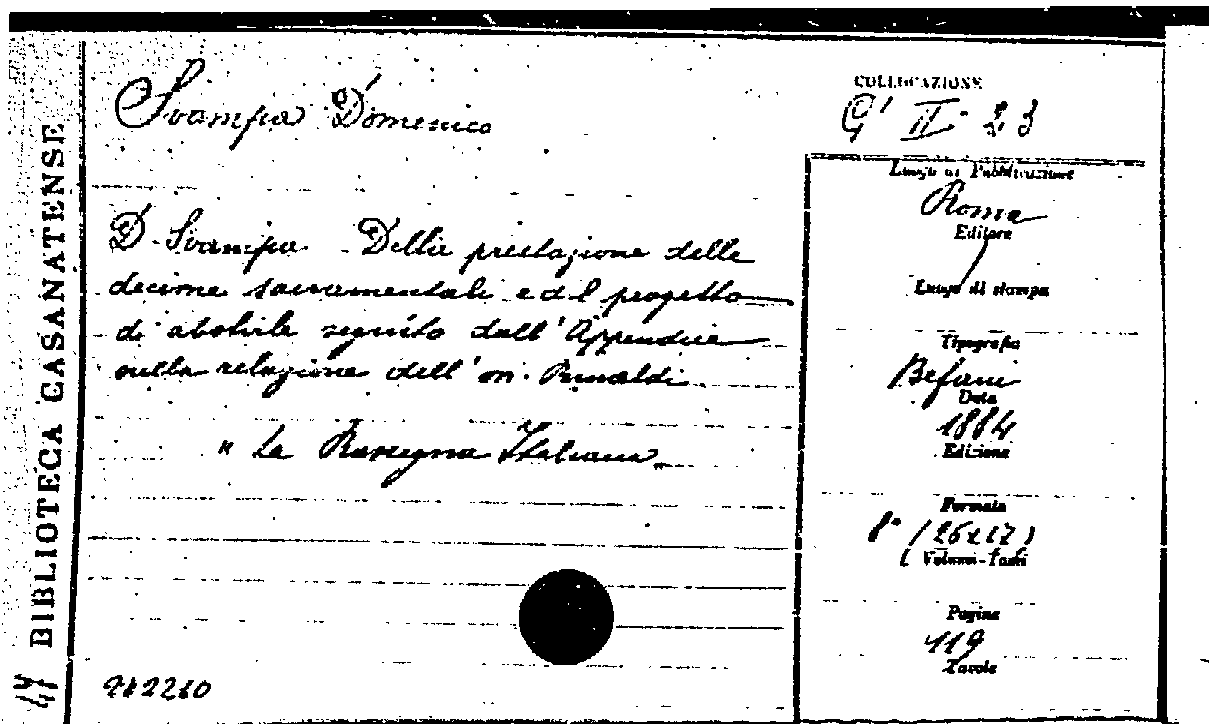 BIBLIOTECA CASANATENSE
Svampa Domenico
D. Svampa. Della prestazione delle
decime sacramentali e del progetto
di abolirle seguito dall'Appendice
sulla relazione dell'on. Rinaldi
" La Rassegna Italiana
COLLOCAZIONE
G' II. 23
Luogo di Pubblicazione
Roma
Editore
/
Luogo di stampa
Tipografia
Befani
Data
1884
Edizione
Formato
8° (26x17)
Volumi-Tomi
Pagine
119
Tavole